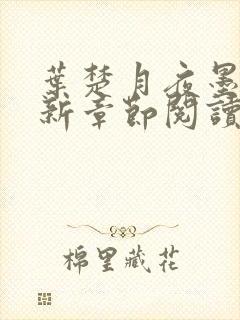 葉楚月夜墨
新章節閱讀
棉里藏花